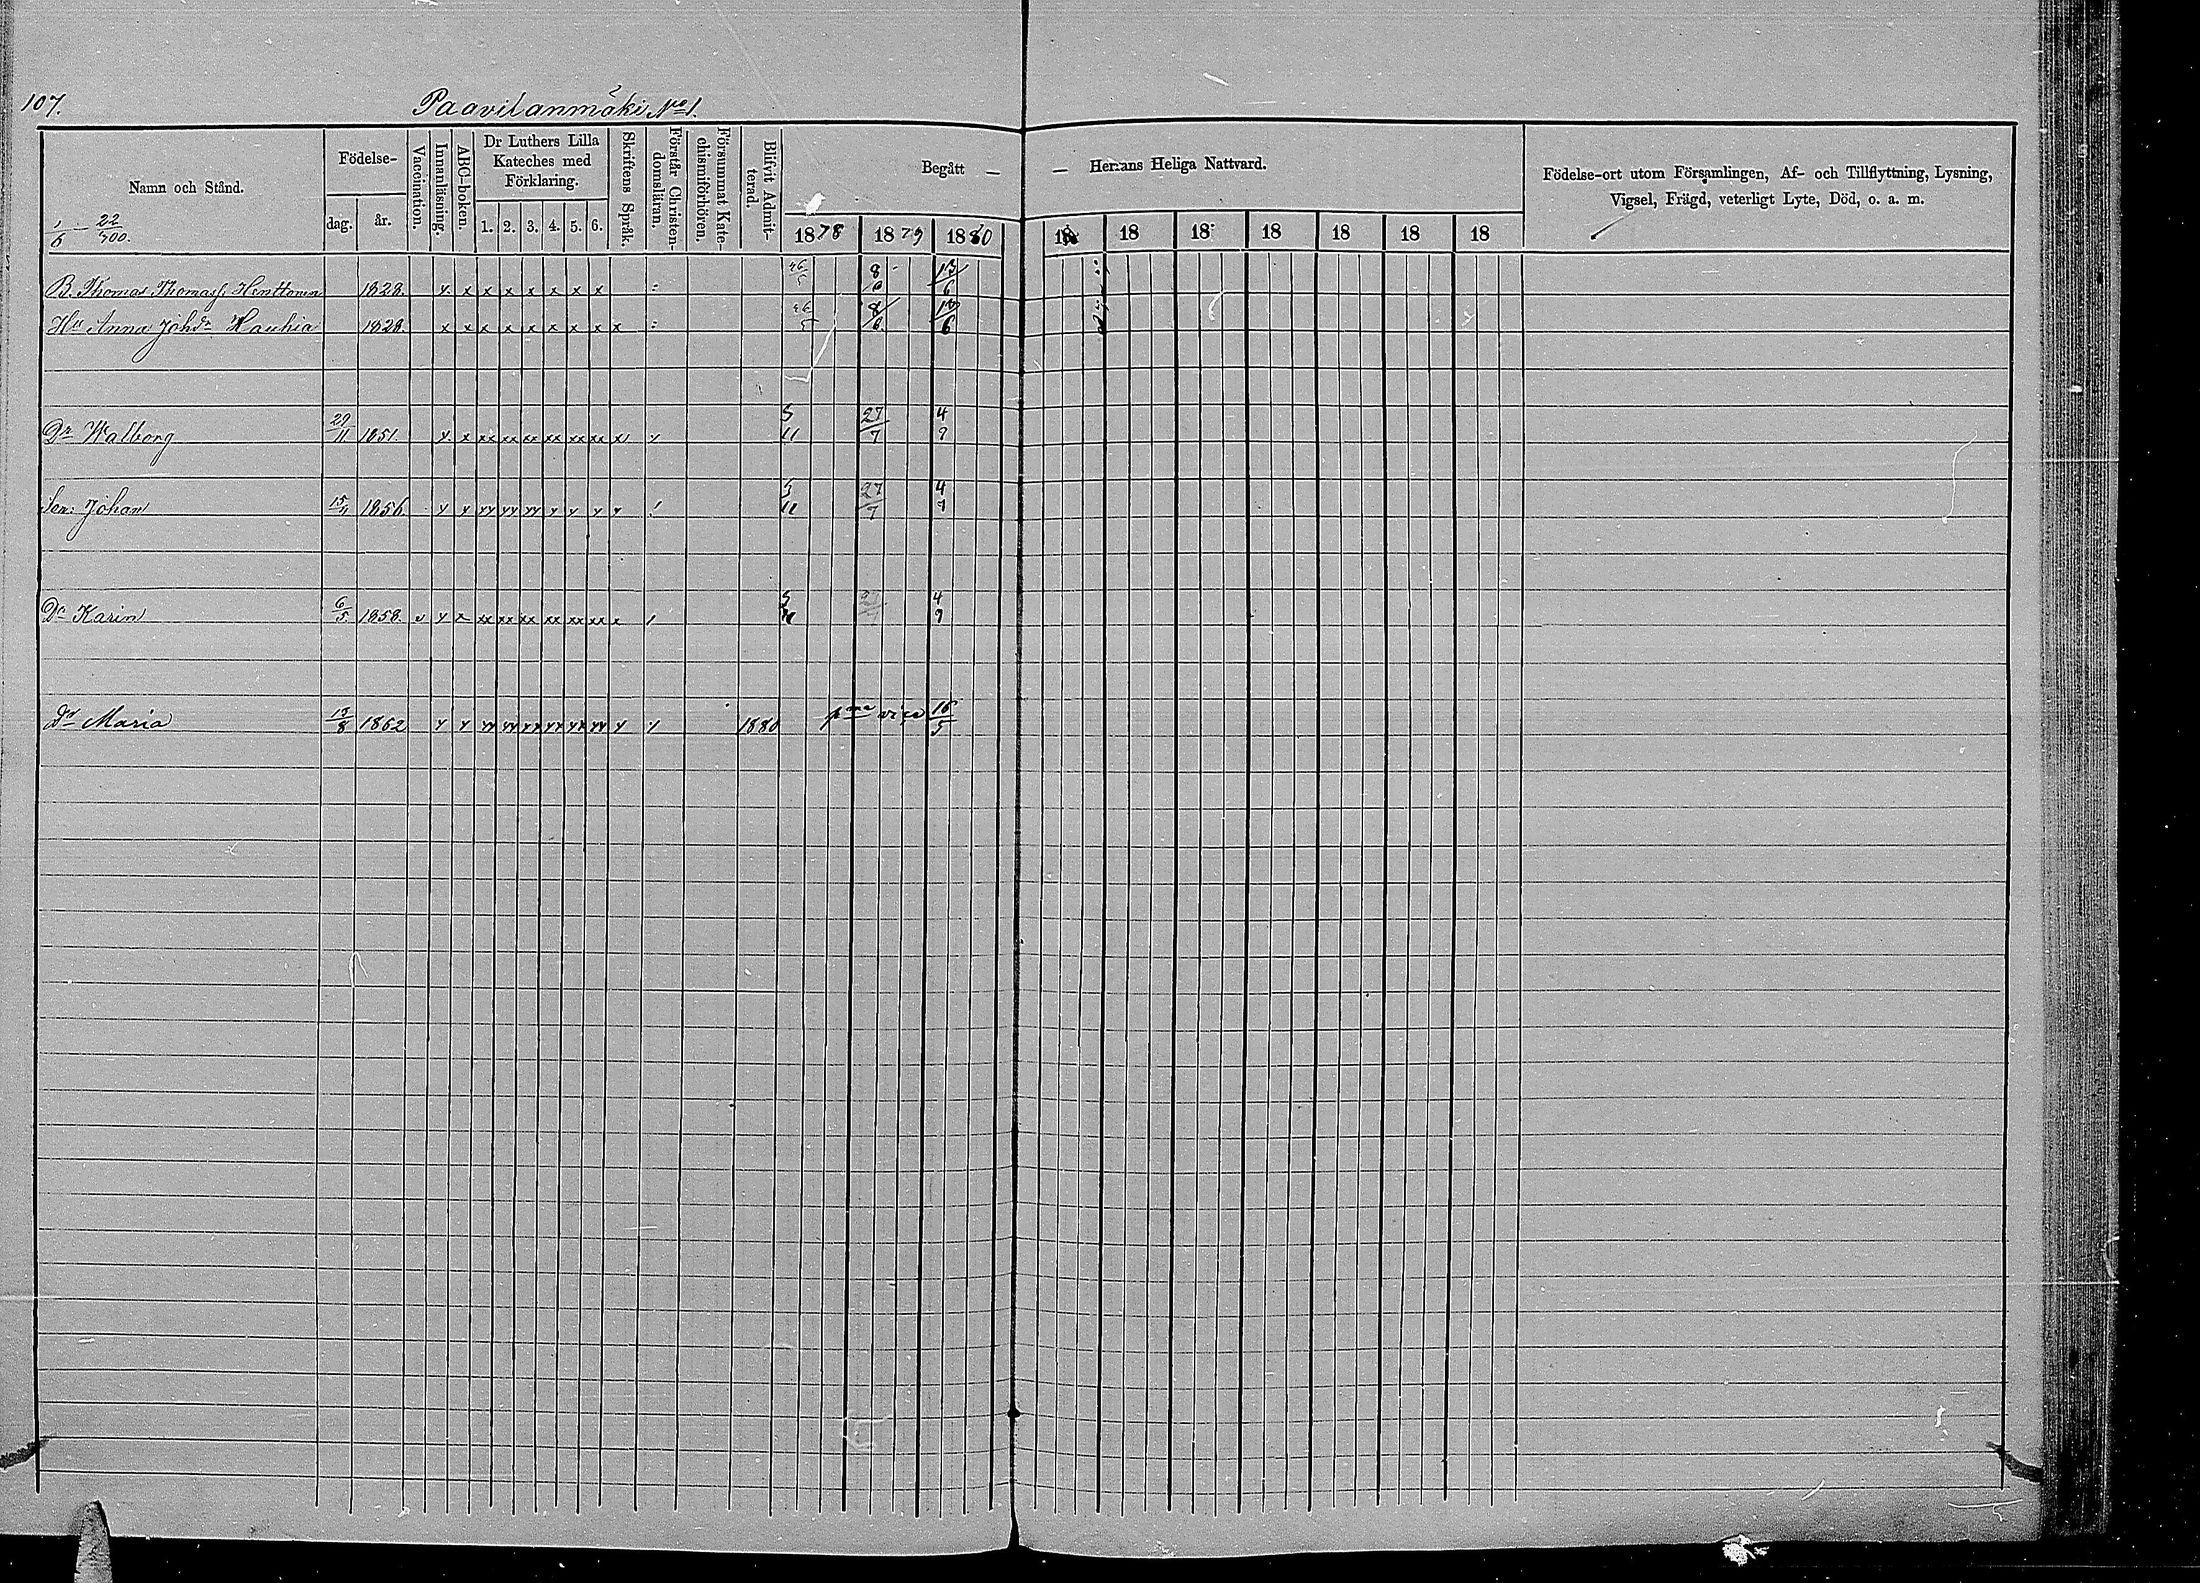 107.
Paavilanmäki No 1.
Namn och Stånd.
1/6 — 22/700.
Födelse-
dag.
år.
Vaccination.
Innanläsning.
ABC-boken.
Dr Luthers Lilla
Kateches med
Förklaring.
1. 2. 3. 4. 5. 6.
Skriftens Språk.
Förstår Christen-
domsläran.
Försummat Kate-
chismiförhören.
Blifvit Admit-
terad.
Begått —
— Herrans Heliga Nattvard.
1878 1879 1880 18 18 18 18 18 18 18
Födelse-ort utom Församlingen, Af- och Tillflyttning, Lysning,
Vigsel, Frägd, veterligt Lyte, Död, o. a. m.
B. Thomas Thomass Henttonen 1828. x x x x x x x x 26/5 8/6 13/6
Hu Anna Johdr Hauhia 1828. x x x x x x x x x 26/5 8/6 13/6
Dr Walborg 29/11 1851. x x xx xx xx xx xx xx 5/11 27/7 4/9
Son: Johan 15/11 1856. 5/11 27/7 4/9
Dr Karin 6/5 1858. v x x xx xx xx xx xx xx x 5/11 4/9
Dr Maria 15/8 1862 1880 pma vice 16/5